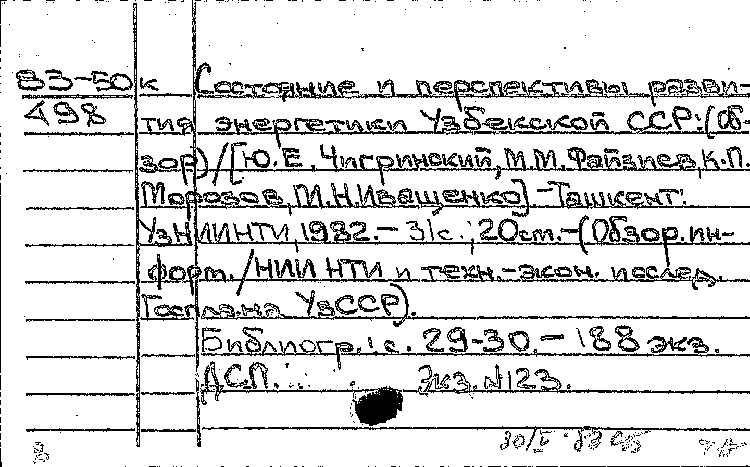 83-50к Состояние и перспективы разви-
498 тия энергетики Узбекской ССР: (Об-
зор) / [Ю.Е. Чигринский, М.М. Файзиев, К.П.
Морозов, М.Н. Иващенко]. - Ташкент:
УзНИИНТИ, 1982. - 31с.; 20см. - (Обзор. ин-
форм. / НИИ НТИ и техн.-экон. исслед.
Госплана УзССР).
Библиогр.: с. 29-30. - 188 экз.
ДСП. Экз. №123.
30/V-83